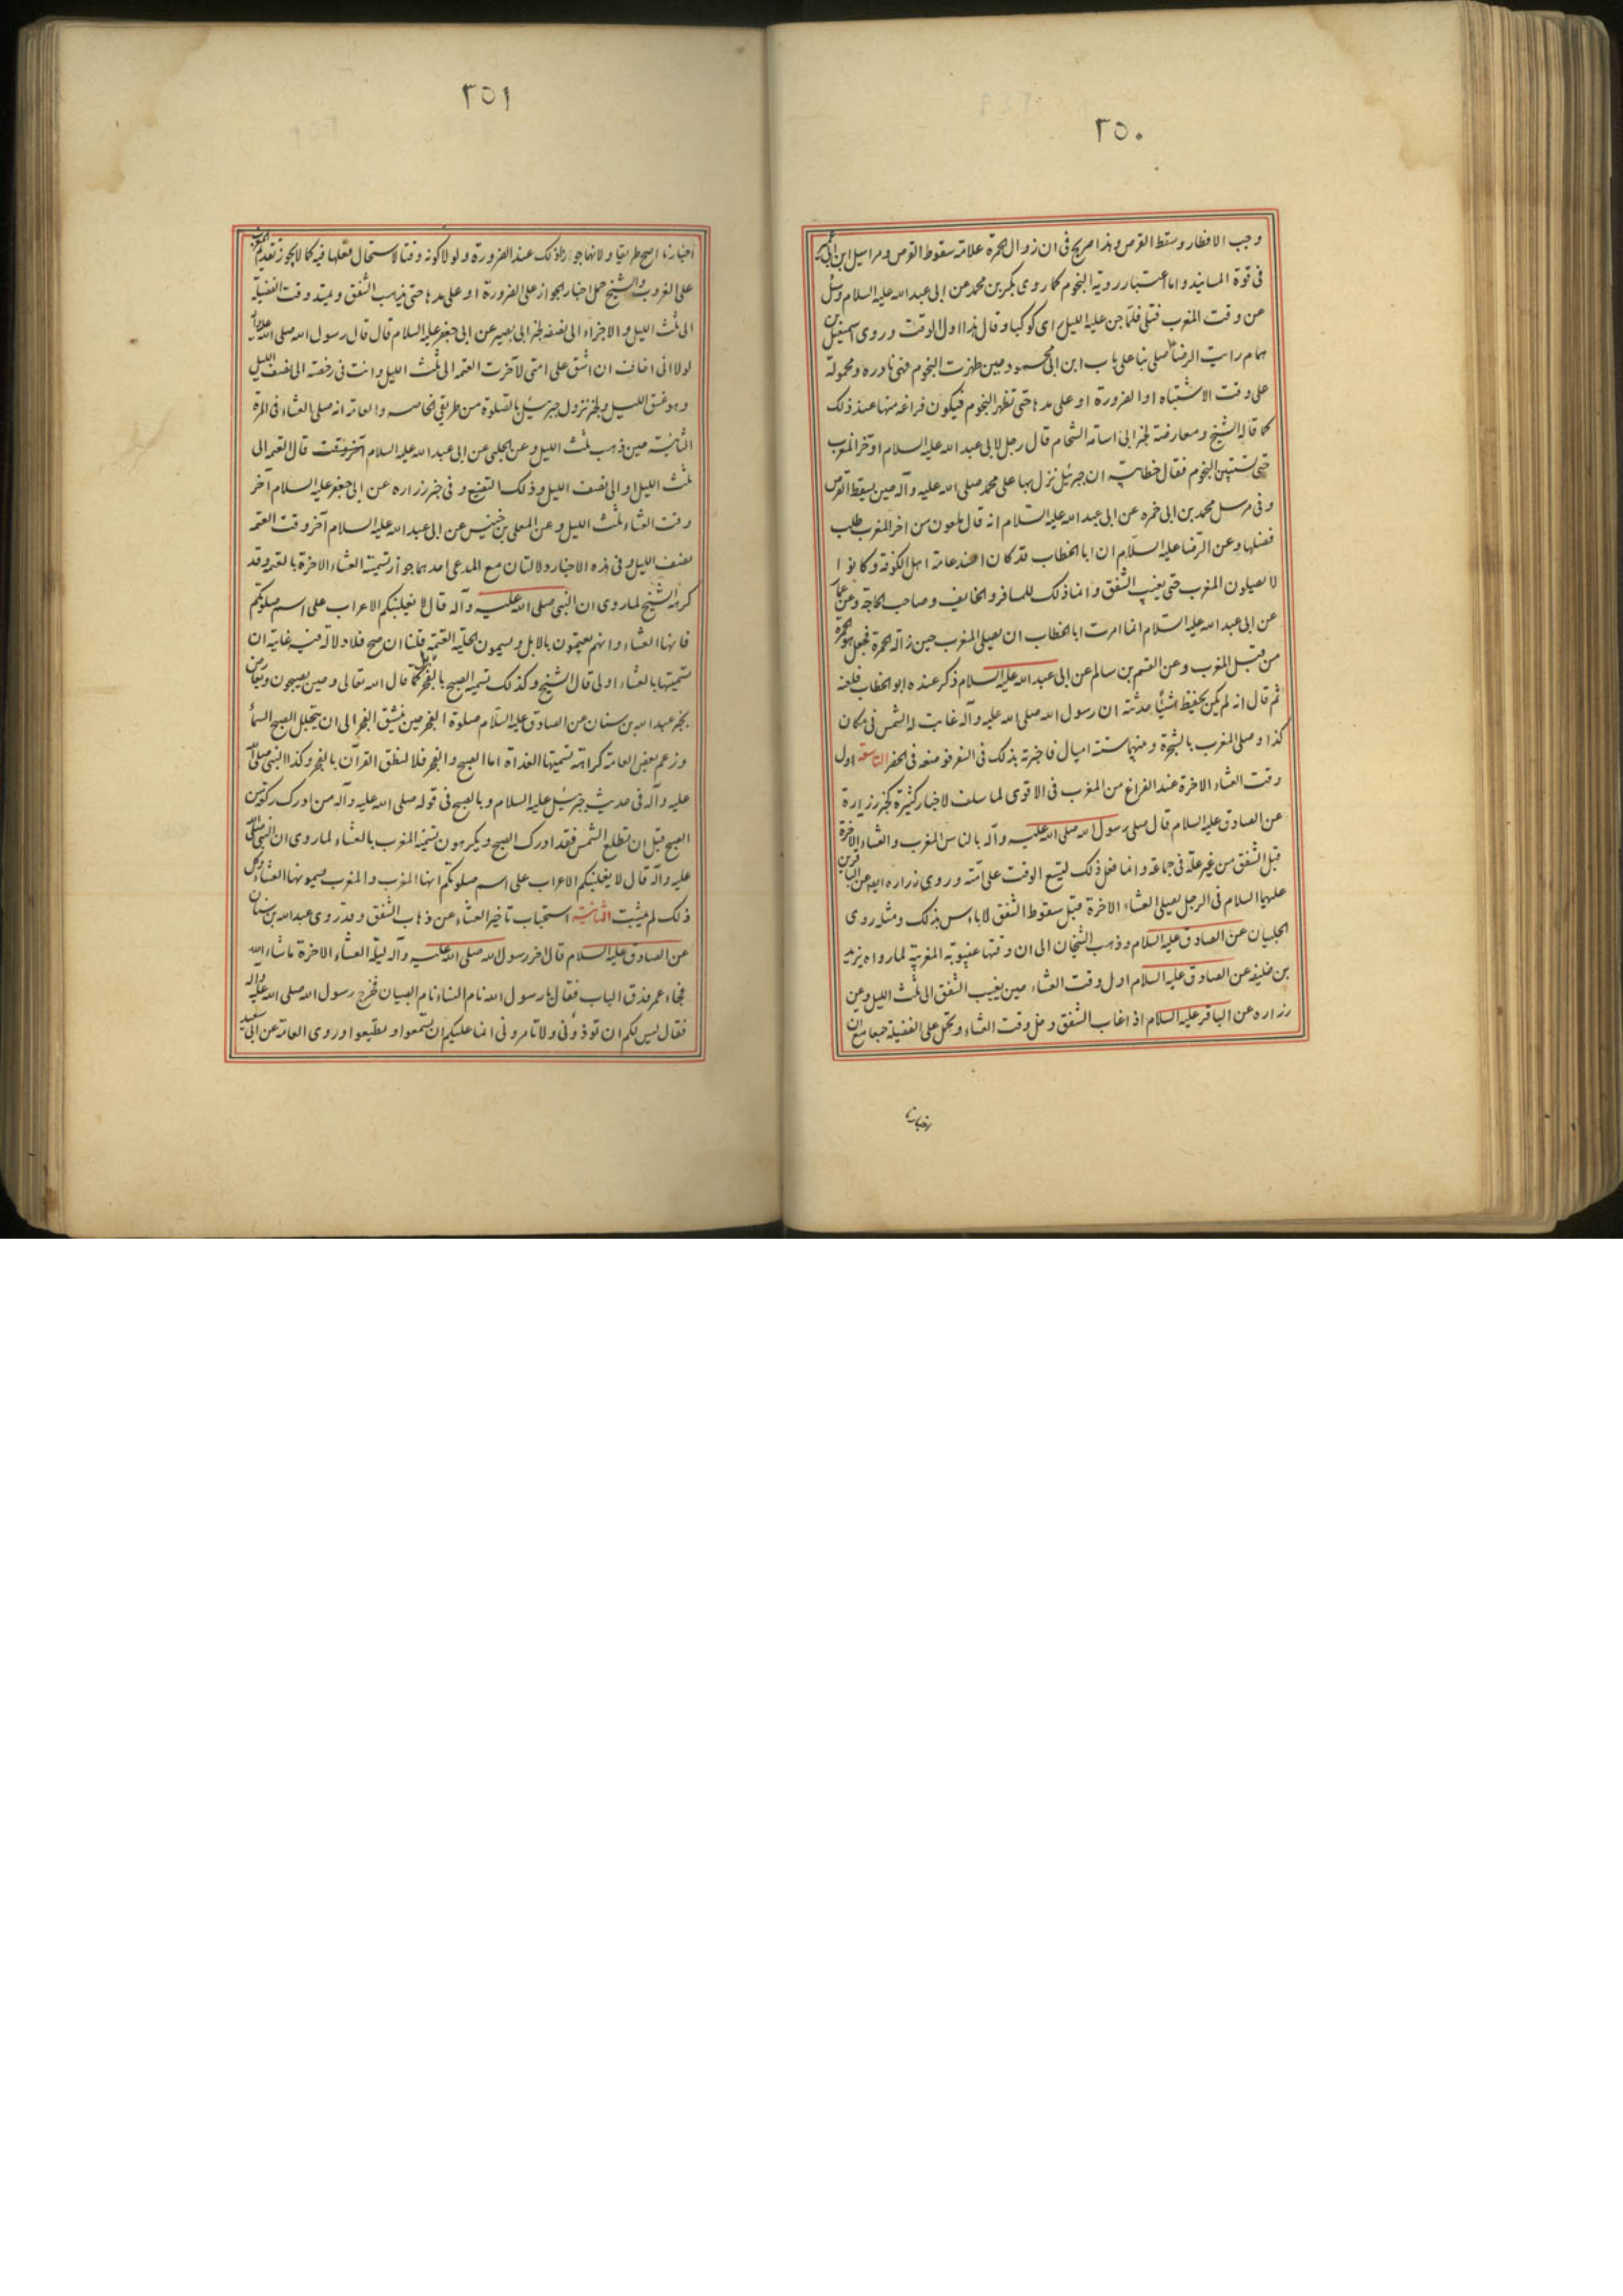 ٢٥٠
وجب الافطار وسقط القرص وهذا صريح فى ان زوال الحمرة علامة سقوط القرص ومراسيل ابن ابى عمير
فى قوة المسانيد واما اعتبار روية النجوم كما روى بكر بن محمد عن ابى عبد الله عليه السلام وسئل
عن وقت المغرب فتلى فلما جن عليه الليل راى كوكبا وقال هذا اول الوقت وروى اسمعيل بن
همام رايت الرضا ع صلى بنا على باب ابن ابى محمود حين ظهرت النجوم فهى نادره ومحمولة
على وقت الاشتباه او الضرورة او على مدها حتى تظهر النجوم فيكون فراغه منها عند ذلك
كما قاله الشيخ ومعارضة لخبر ابى اسامه الشحام قال رجل لابى عبد الله عليه السلام اوخر المغرب
حتى تستبين النجوم فقال خطابية ان جبرئيل نزل بها على محمد صلى الله عليه وآله حين يسقط القرص
وفى مرسل محمد بن ابى حمزه عن ابى عبد الله عليه السلام انه قال ملعون من اخر المغرب طلب
فضلها وعن الرضا عليه السلام ان ابا الخطاب قد كان افسد عامة اهل الكوفة وكانوا
لا يصلون المغرب حتى يغيب الشفق وانما ذلك للمسافر والخايف وصاحب الحاجة وعن عمار
عن ابى عبد الله عليه السلام انما امرت ابا الخطاب ان يصلى المغرب حين زالة الحمرة فجعل هو الحمرة
من قبل المغرب وعن القسم بن سالم عن ابى عبد الله عليه السلام ذكر عنده ابو الخطاب فلعنه
ثم قال انه لم يكن يحفظ شيئا حدثته ان رسول الله صلى الله عليه وآله غابت له الشمس فى مكان
كذا وصلى المغرب بالشجرة وبينهما ستة اميال فاخبرته بذلك فى السفر فوضعه فى الحضر التاسعة اول
وقت العشاء الاخرة عند الفراغ من المغرب فى الاقوى لما سلف لاخبار كثيرة كخبر زرارة
عن الصادق عليه السلام قال صلى رسول الله صلى الله عليه وآله بالناس المغرب والعشاء الاخرة
قبل الشفق من غير علة فى جماعة وانما فعل ذلك ليتسع الوقت على امته وروى زراره ايضا عن الباقرين
عليهما السلام فى الرجل يصلى العشاء الاخرة قبل سقوط الشفق لا باس بذلك ومثله روى
الحلبيان عن الصادق عليه السلام وذهب الشيخان الى ان وقتها غيبوبة المغربية لما رواه يزيد
بن خليفه عن الصادق عليه السلام اول وقت العشاء حين يغيب الشفق الى ثلث الليل وعن
زراره عن الباقر عليه السلام اذا غاب الشفق دخل وقت العشاء ويحمل على الفضيلة جمعا مع ان
اخبارنا
٢٥١
اخبارنا اصح طريقا ولانها جوازا ذلك عند الضرورة ولولا كونه وقتا لاستحال فعلها فيه كما لا يجوز تقديم المغرب
على الغروب والشيخ حمل اخبار الجواز على الضرورة او على مدها حتى يذهب الشفق ويمتد وقت الفضيلة
الى ثلث الليل والاجزاء الى نصفه لخبر ابى بصير عن ابى جعفر عليه السلام قال قال رسول الله صلى الله عليه وآله
لولا انى اخاف ان اشق على امتى لاخرت العتمه الى ثلث الليل وانت فى رخصة الى نصف الليل
وهو غسق الليل ولخبر نزول جبرئيل بالصلوة من طريقى الخاصه والعامة انه صلى العشاء فى المرة
الثانية حين ذهب ثلث الليل وعن الحلبى عن ابى عبد الله عليه السلام آخر وقت قال العتمه الى
ثلث الليل او الى نصف الليل وذلك التضييع وفى خبر زراره عن ابى جعفر عليه السلام آخر
وقت العشاء ثلث الليل وعن المعلى بن خنيس عن ابى عبد الله عليه السلام آخر وقت العتمه
نصف الليل وفى هذه الاخبار دلالتان مع المدعى احدهما جواز تسمية العشاء الاخرة بالعتمة وقد
كرهه الشيخ لما روى ان النبى صلى الله عليه وآله قال لا يغلبنكم الاعراب على اسم صلوتكم
فانها العشاء وانهم يعتمون بالابل ويسمون الحلبة العتمة قلنا ان صح فلا دلالة فيه غايته ان
تسميتها بالعشاء اولى قال الشيخ وكذلك تسميه الصبح بالفجر بل كما قال الله تعالى وحين يصبحون ويعارض
بخبر عبد الله بن سنان عن الصادق عليه السلام صلوة الفجر حين ينشق الفجر الى ان يتجلل الصبح السماء
وزعم بعض العامة كراهة تسميتها الغداة اما الصبح والفجر فلا لنطق القرآن بالفجر وكذا النبى صلى الله
عليه وآله فى حديث جبرئيل عليه السلام وبالصبح فى قوله صلى الله عليه وآله من ادرك ركعتين
الصبح قبل ان تطلع الشمس فقد ادرك الصبح ويكرهون تسمية المغرب بالعشاء لما روى ان النبى صلى الله
عليه وآله قال لا يغلبنكم الاعراب على اسم صلوتكم انها المغرب والمغرب يسمونها العشاء وكل
ذلك لم يثبت الثانية استحباب تاخير العشاء عن ذهاب الشفق وقد روى عبد الله بن سنان
عن الصادق عليه السلام قال اخر رسول الله صلى الله عليه وآله ليلة العشاء الاخرة ما شاء الله
فجاء عمر فدق الباب فقال يا رسول الله نام النساء نام الصبيان فخرج رسول الله صلى الله عليه وآله
فقال ليس لكم ان توذونى ولا تامرونى انما عليكم ان تسمعوا وتطيعوا وروى العامة عن ابى سعيد